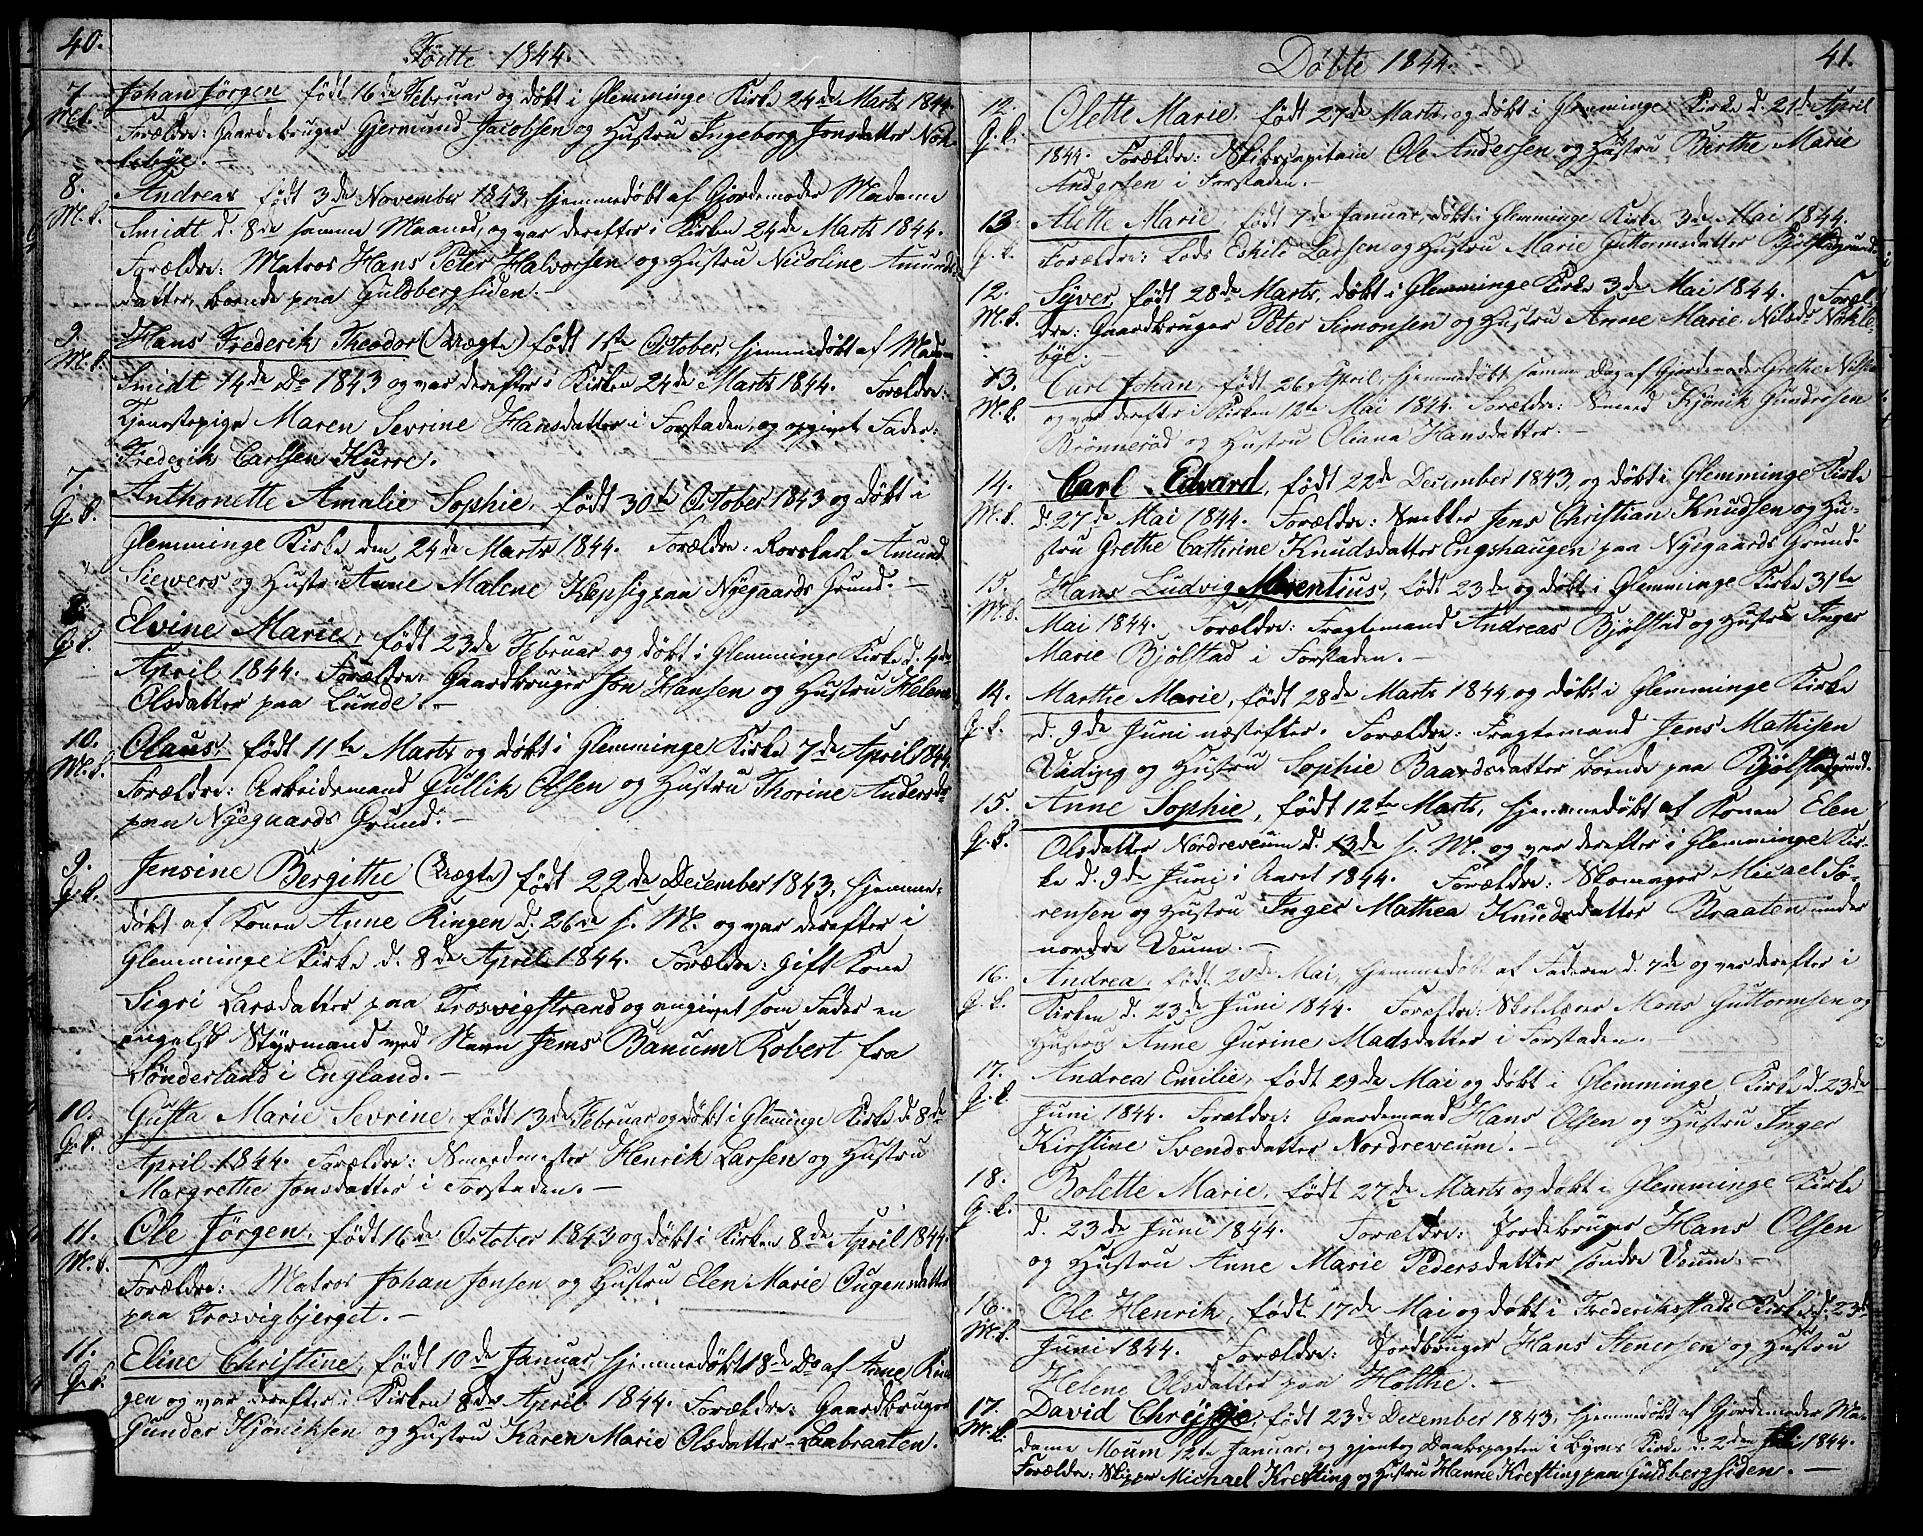 40.
Födte 1844.
7. M.k. Johan Jörgen födt 16de Februar og döbt i Glemminge Kirke 24de Marts 1844.
Forældre: Gaardbruger Gjermund Jacobsen og Hustru Ingeborg Jonsdatter Nök-
lebye. —
8. M.k. Andreas födt 3de November 1843, hjemmedöbt af Gjordemoder Madame
Smidt d. 8de samme Maaned, og var derefter i Kirken 24de Marts 1844.
Forældre: Matros Hans Peter Halvorsen og Hustru Nicoline Amunds-
datter, boende paa Guldbergsiden. —
9. M.k. Hans Frederik Theodor (Uægte) födt 1ste October, hjemmedöbt af Madam
Smidt 14de Do 1843 og var derefter i Kirken 24de Marts 1844. Forældre:
Tjenestepige Maren Sevrine Hansdatter i Forstaden, og opgivet Fader:
Frederik Carlsen Kurre.
7. G.k. Anthonette Amalie Sophie, födt 30te October 1843 og döbt i
Glemminge Kirke den 24de Marts 1844. Forældre: Amund
Siewers og Hustru Anne Malene Klepsig paa Nyegaards Grund. —
8. G.k. Elvine Marie, födt 23de Februar og döbt i Glemminge Kirke d.
April 1844. Forældre: Gaardbruger Jon Hansen og Hustru Helene
Olsdatter paa Lunde. —
10. M.k. Olaus, födt 11te Marts og döbt i Glemminge Kirke 7de April 1844.
Forældre: Arbeidsmand Gullik Olsen og Hustru Thorine Andersd:
paa Nyegaards Grund. —
9. G.k. Jensine Bergithe (Uægte) födt 22de December 1843, hjemme-
döbt af Konen Anne Ringen d. 26de s. M. og var derefter i
Glemminge Kirke d. 8de April 1844. Forældre: gift Kone
Sigri Larsdatter paa Trosvigstrand og angivet som Fader en
engelsk Styrmand ved Navn Jems Banum Robert fra
Sönderland i England. —
10. G.k. Gusta Marie Sevrine, födt 13de Februar og döbt i Glemminge Kirke d. 8de
April 1844. Forældre: Smedmester Henrik Larsen og Hustru
Margrethe Jonsdatter i Forstaden. —
11. M.k. Ole Jörgen, födt 16de October 1843 og döbt i Kirken 8de April 1844.
Forældre: Matros Johan Jonsen og Hustru Elen Marie Ougensdatter
paa Trosvigbjerget. —
11. G.k. Eline Christine, födt 10de Januar, hjemmedöbt 18de Do af Anne Rin-
gen og var derefter i Kirken 8de April 1844. Forældre: Gaardbruger
Gunder Kjöniksen og Hustru Karen Marie Olsdatter Labraaten.
41.
Döbte 1844.
12. G.k. Olette Marie, födt 27de Marts, og döbt i Glemminge Kirke d. 21de April
1844. Forældre: Skibscapitain Ole Andersen og Hustru Berthe Marie
Andersen i Forstaden. —
13. G.k. Alette Marie, födt 7de Januar, döbt i Glemminge Kirke 3de Mai 1844.
Forældre: Lods Eskild Larsen og Hustru Marie Guttormsdatter Bjölstadgrund.
12. M.k. Syver, födt 28de Marts, döbt i Glemminge Kirke 3de Mai 1844. Foræl-
dre: Gaardbruger Peter Simonsen og Hustru Anne Marie Nilsd: Nökle-
bye. —
13. M.k. Carl Johan, födt 26 April, hjemmedöbt samme Dag af Gjordemoder Grethe
og var derefter i Kirken 12te Mai 1844. Forældre: Smed Kjönik Gundersen
Brönneröd og Hustru Oliana Hansdatter. —
14. M.k. Carl Edvard, födt 22de December 1843, og döbt i Glemminge Kirke
d. 27de Mai 1844. Forældre: Snekker Jens Christian Knudsen og Hu-
stru Grethe Cathrine Knudsdatter Engshaugen paa Nyegaards Grund.
15. M.k. Hans Ludvig Mirentius, födt 23de og döbt i Glemminge Kirke 31te
Mai 1844. Forældre: Fragtemand Andreas Bjölstad og Hustru Inger
Marie Bjölstad i Forstaden. —
14. G.k. Marthe Marie, födt 28de Marts 1844 og döbt i Glemminge Kirke
d. 9de Juni næstefter. Forældre: Fragtemand Jens Mathisen
og Hustru Sophie Baardsdatter boende paa Bjölstadgrund.
15. G.k. Anne Sophie, födt 12te Marts, hjemmedöbt af Konen Elen
Olsdatter Nordreveum d. 13de s. M. og var derefter i Glemminge Kir-
ke d. 9de Juni i Aaret 1844. Forældre: Skomager Micael Sö-
rensen og Hustru Inger Mathea Knudsdatter Braaten under
nordre Veum. —
16. G.k. Andrea, födt 20de Mai, hjemmedöbt af Faderen d. 7de og var derefter i
Kirken d. 23de Juni 1844. Forældre: Skolelærer Mons Guttormsen og
Hustru Anne Gurine Madsdatter i Forstaden. —
17. G.k. Andrea Emilie, födt 29de Mai og döbt i Glemminge Kirke d. 23de
Juni 1844. Forældre: Gaardmand Hans Olsen og Hustru Inger
Kirstine Svendsdatter Nordreveum. —
18. G.k. Bolette Marie, födt 27de Marts og döbt i Glemminge Kirke
d. 23de Juni 1844. Forældre: Jordbruger Hans Olsen
og Hustru Anne Marie Pedersdatter söndre Veum. —
16. M.k. Ole Henrik, födt 17de Mai og döbt i Frederikstads Kirke d. 23de
Juni 1844. Forældre: Jordbruger Hans Stenersen og Hustru
Helene Olsdatter paa Holthe. —
17. M.k. David, födt 23de December 1843, hjemmedöbt af Gjordemoder Ma-
dame Moum 12te Januar, og gjentog Daabspagten i Byens Kirke d. 2den Juli 1844.
Forældre: Skipper Michael Krefting og Hustru Hanne Krefting paa Guldbergsiden. —